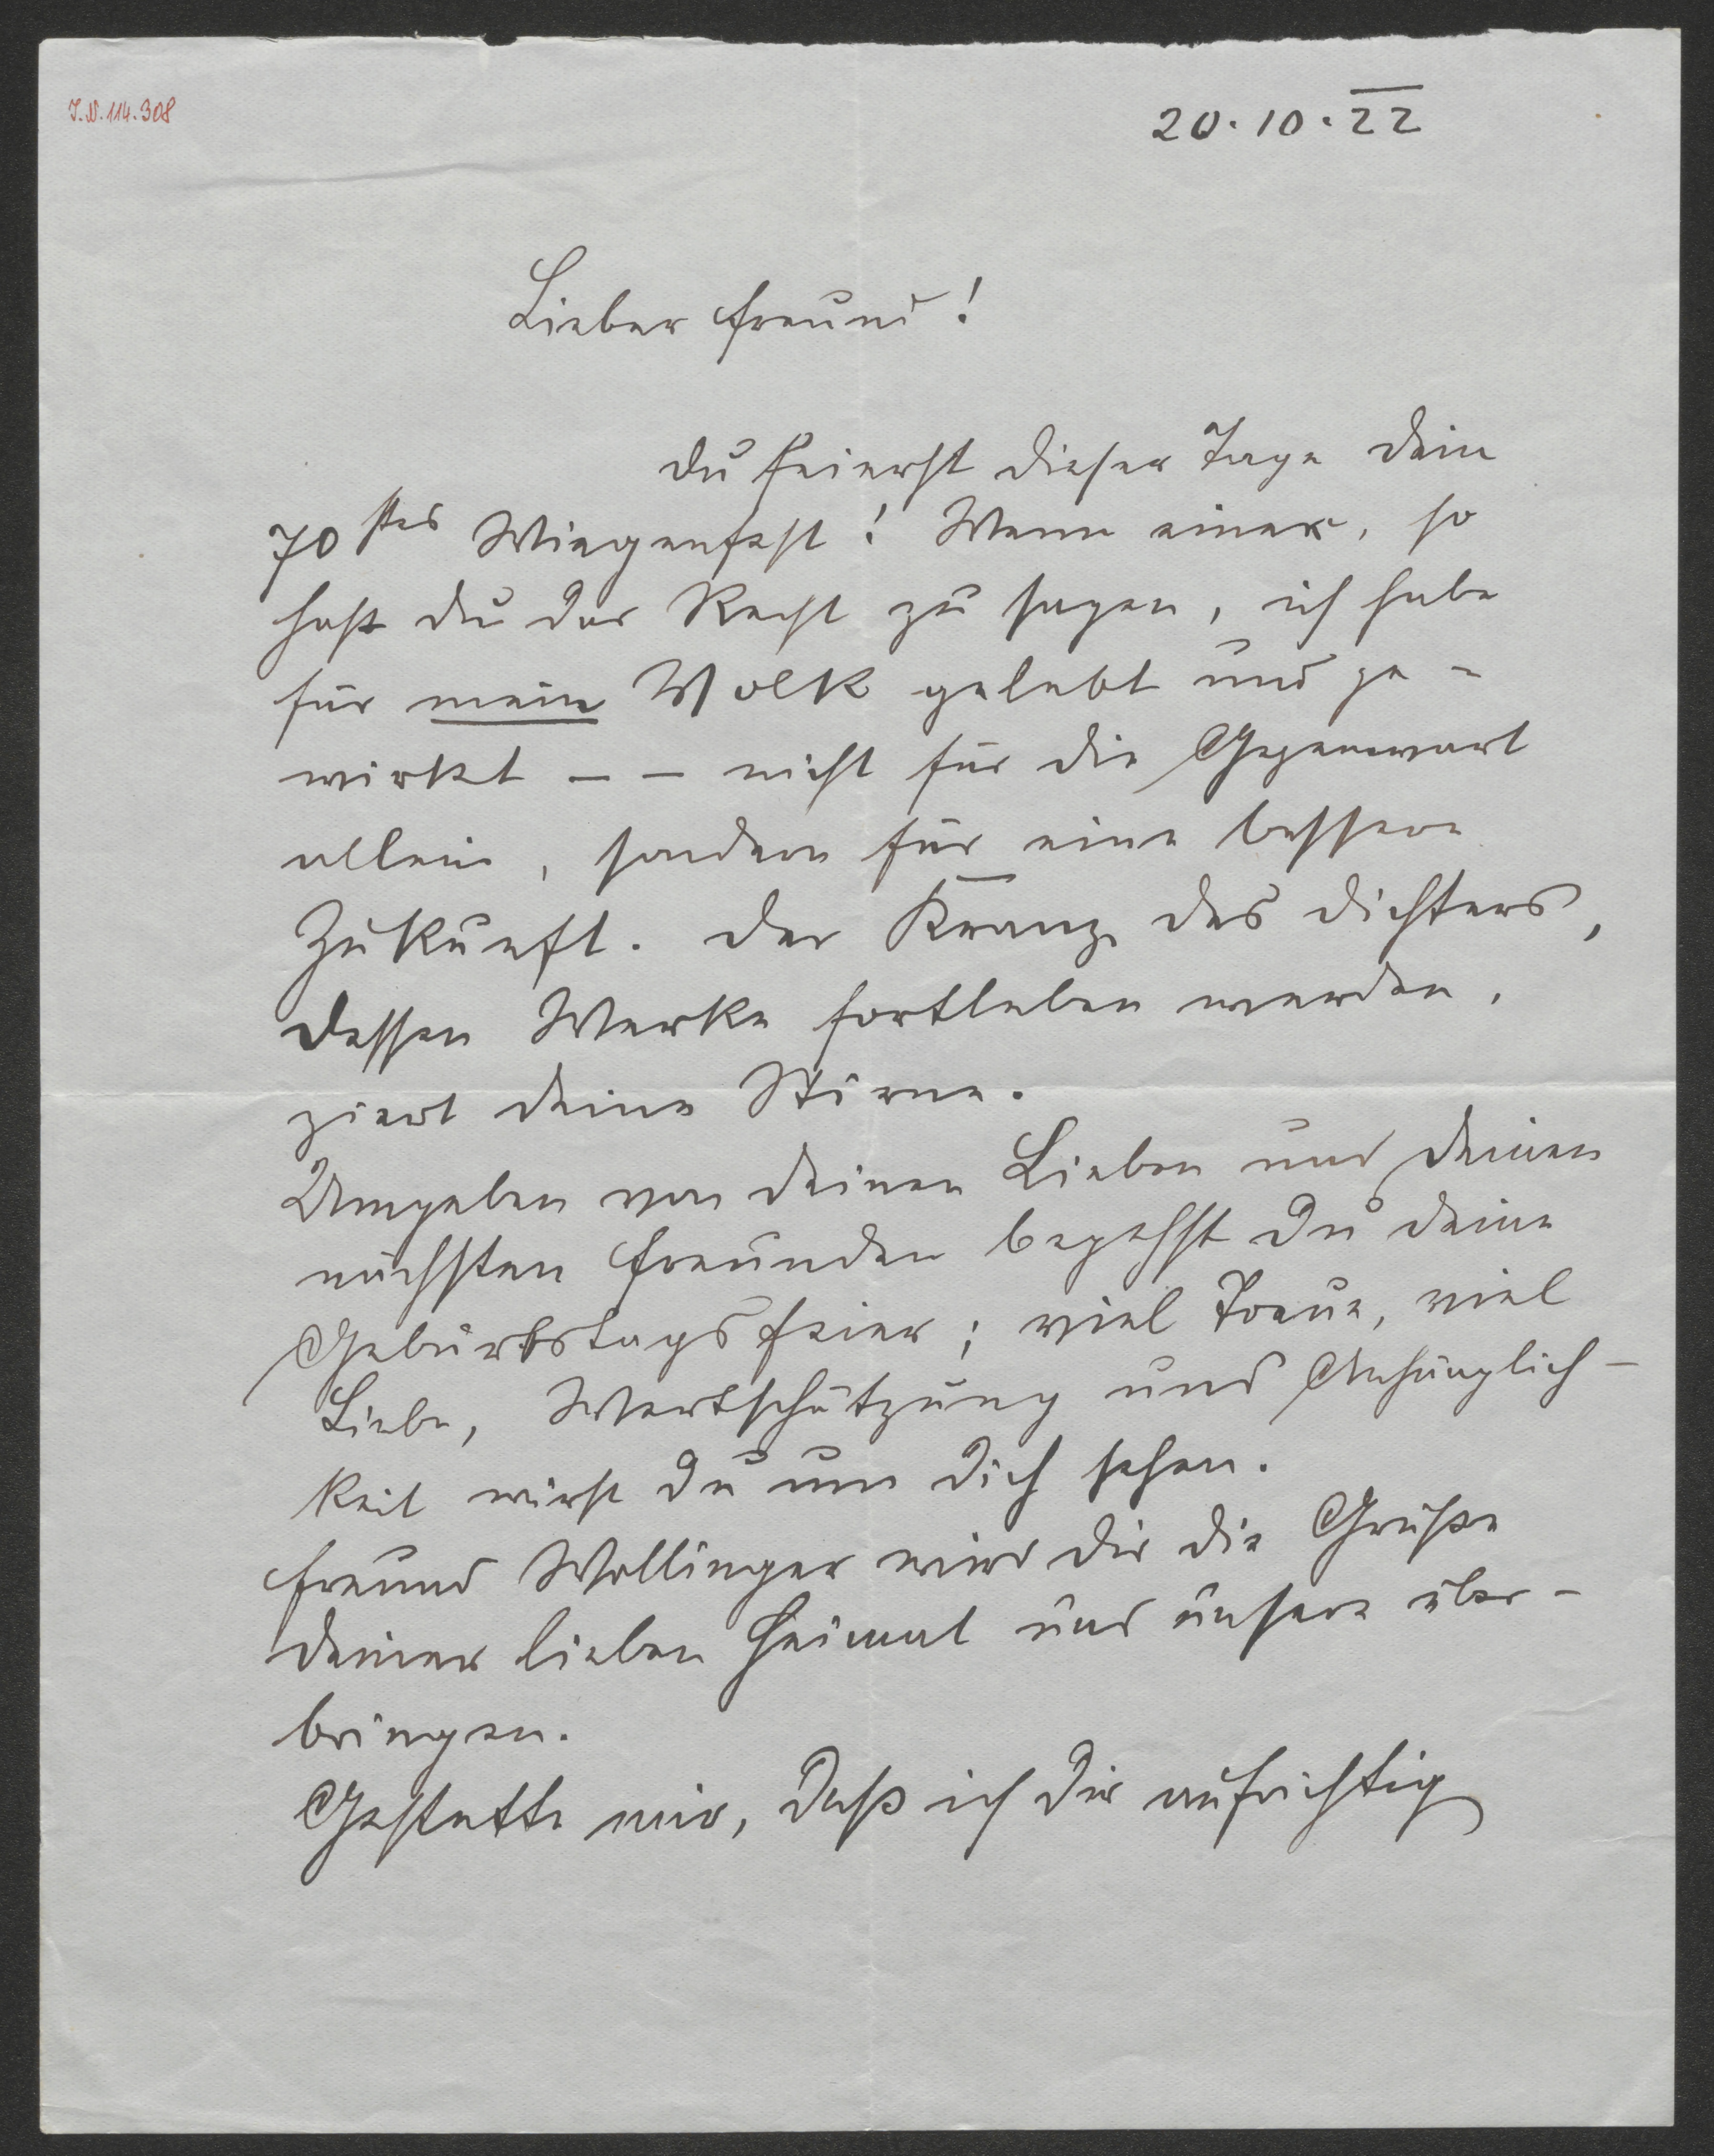 J.N. 114.308
20.10.22
Lieber Freund!
Du feierst dieser Tage Dein
70stes Wiegenfest! Wenn einer, so
hast Du das Recht zu sagen, ich habe
für mein Volk gelebt und ge-
wirkt – – nicht für die Gegenwart
allein, sondern für eine bessere
Zukunft. Der Kranz des Dichters,
dessen Werke fortleben werden,
ziert Deine Stirne.
Umgeben von Deinen Lieben und Deinen
nächsten Freunden begehst Du Deine
Geburtstagsfeier; viel Treue, viel
Liebe, Wertschätzung und Anhänglich-
keit wirst Du um Dich sehen.
Freund Wollinger wird Dir die Grüße
Deiner lieben Heimat und unsere über-
bringen.
Gestatte mir, daß ich Dir aufrichtig